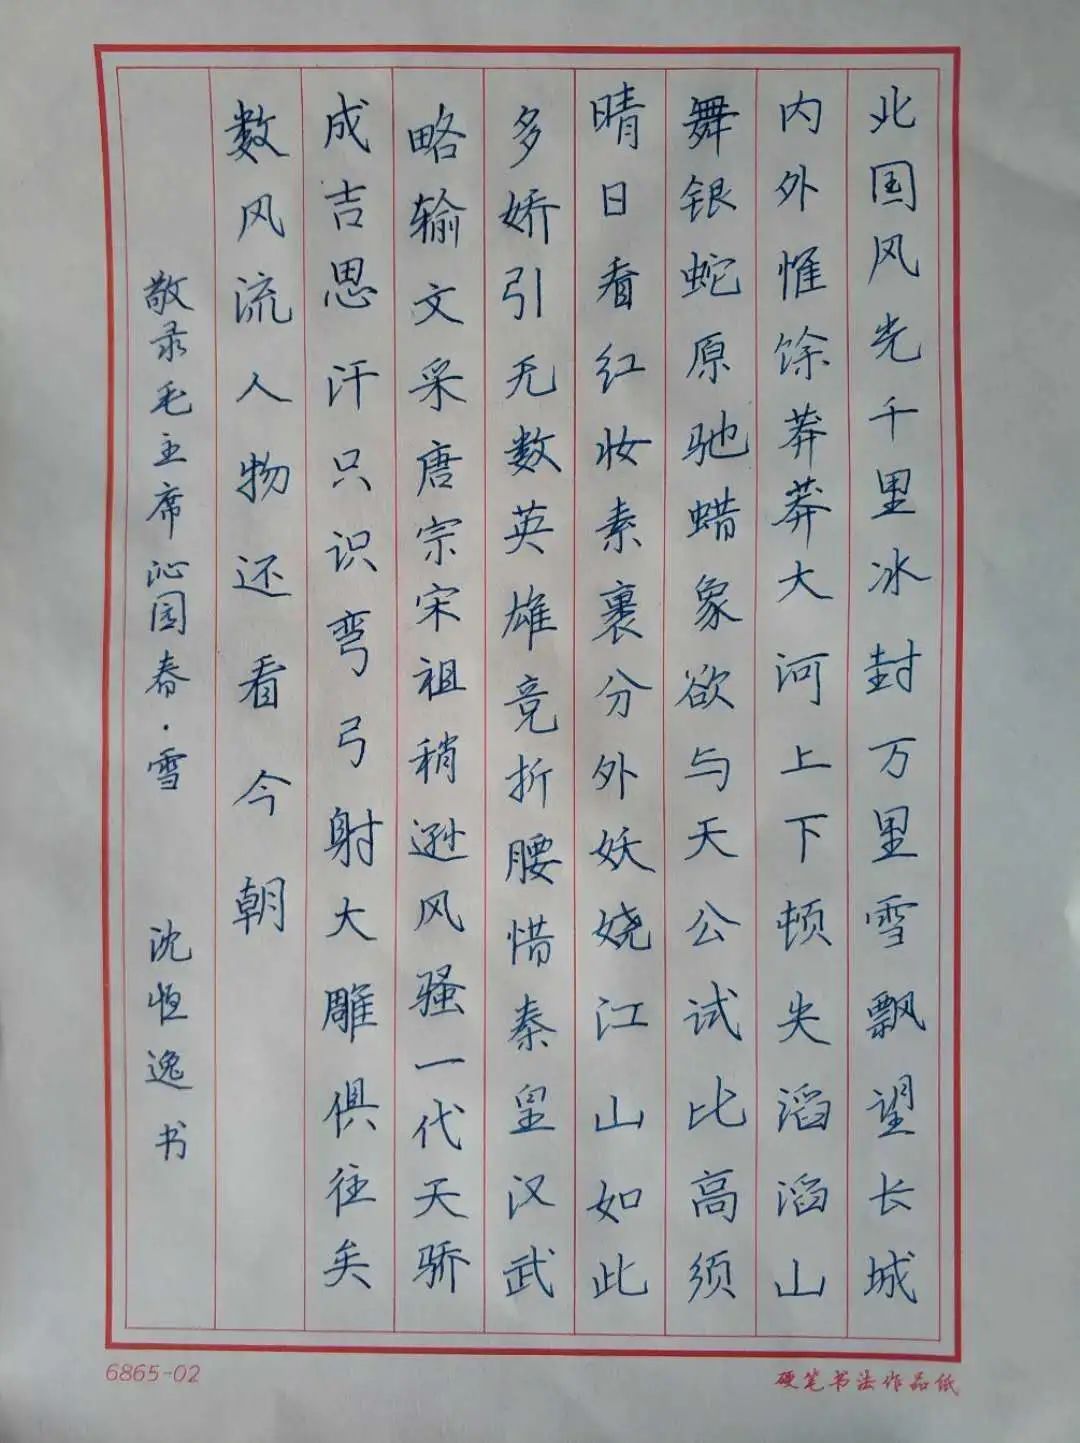 北国风光千里冰封万里雪飘望长城
内外惟馀莽莽大河上下顿失滔滔山
舞银蛇原驰蜡象欲与天公试比高须
晴日看红妆素裹分外妖娆江山如此
多娇引无数英雄竞折腰惜秦皇汉武
略输文采唐宗宋祖稍逊风骚一代天骄
成吉思汗只识弯弓射大雕俱往矣
数风流人物还看今朝
敬录毛主席沁园春·雪 沈恒逸书
6865-02
硬笔书法作品纸